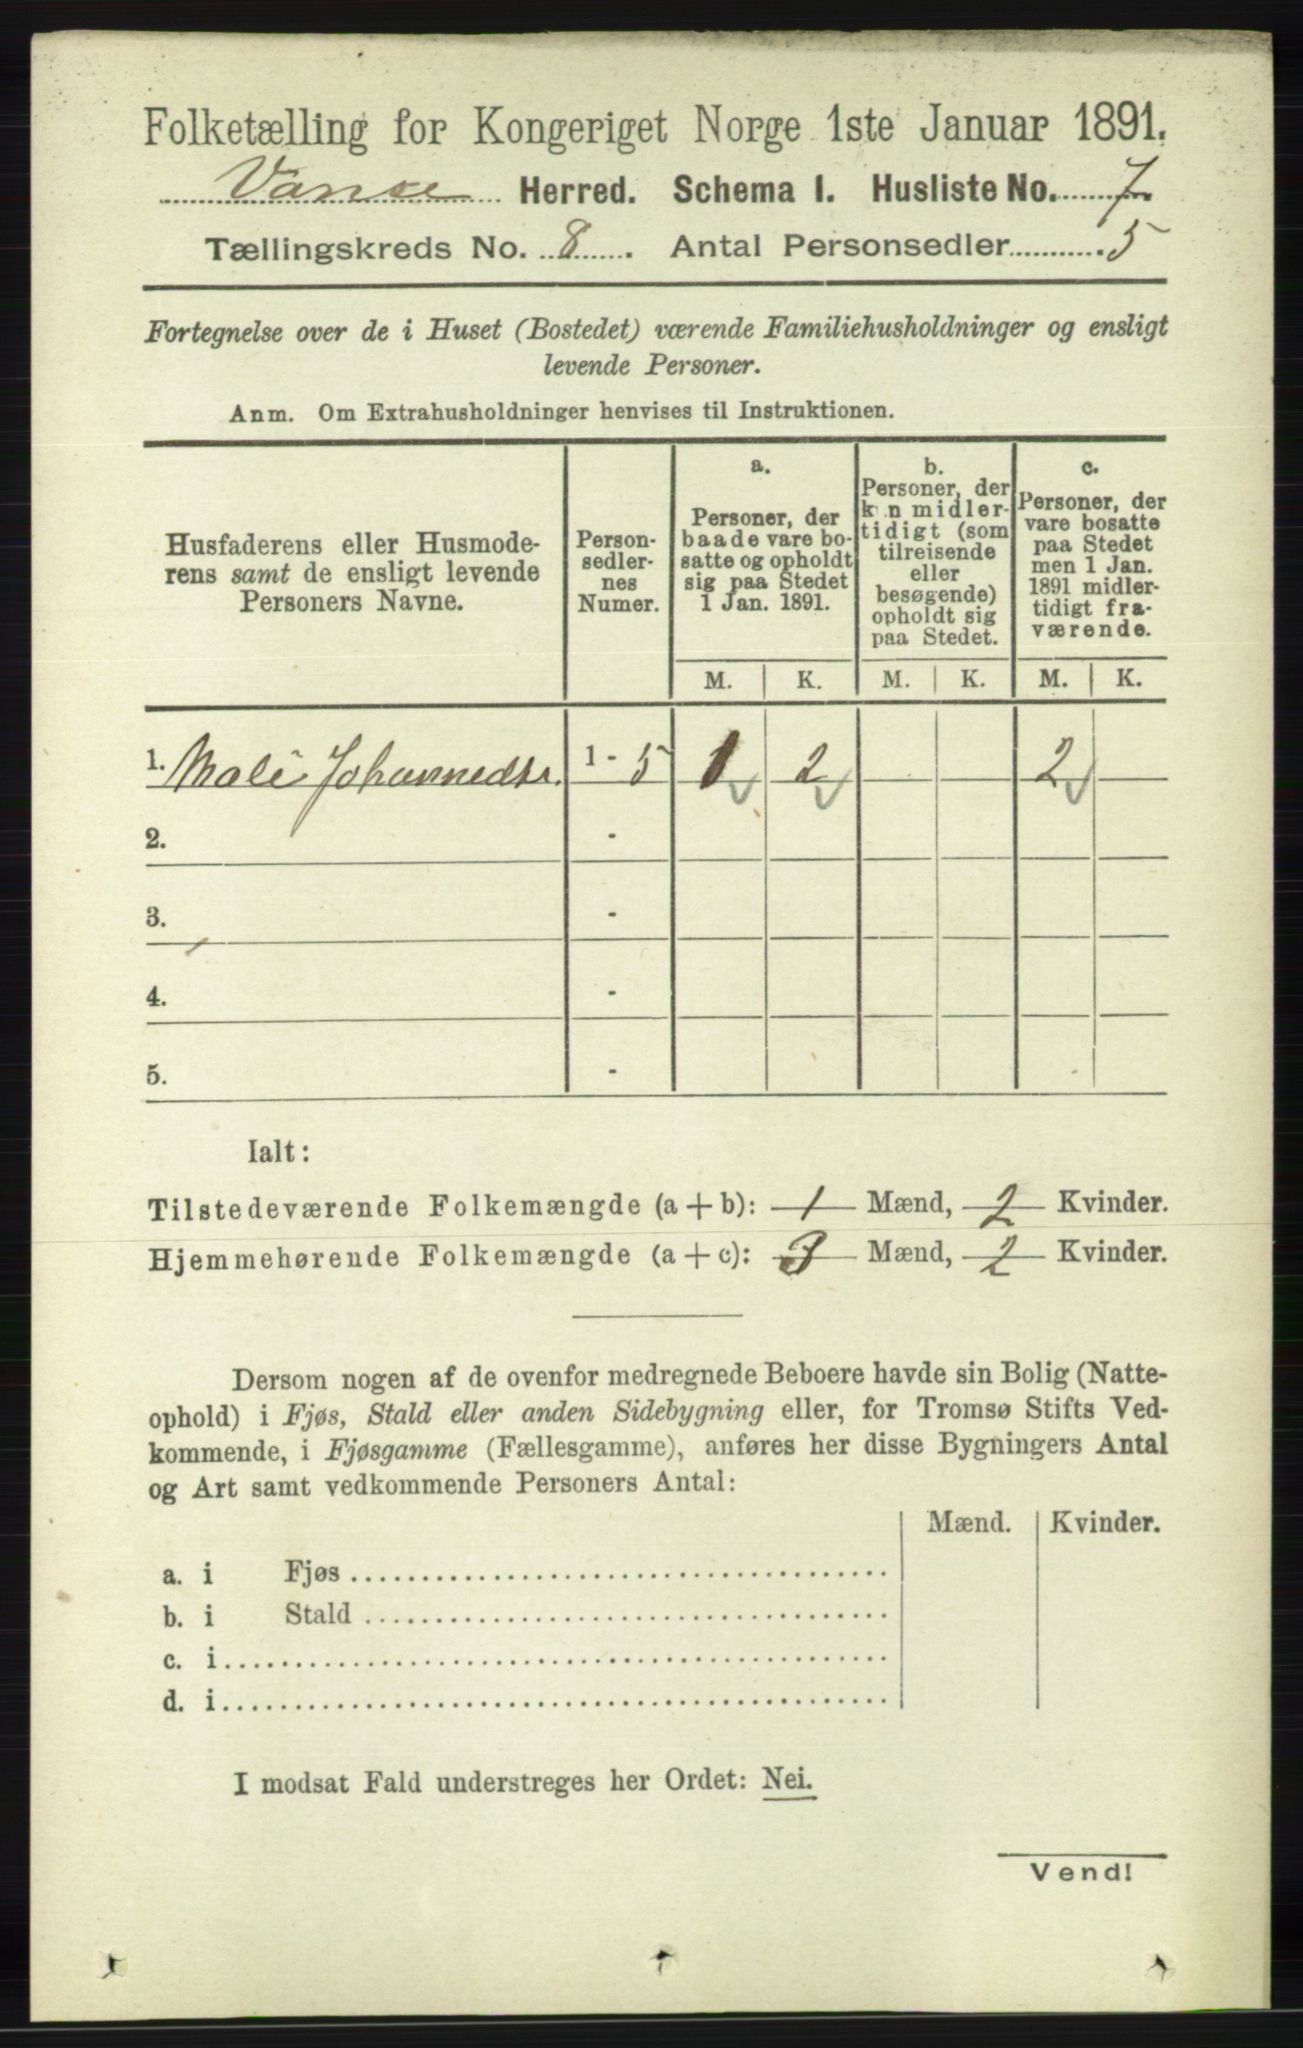 Folketælling for Kongeriget Norge 1ste Januar 1891.
Vanse Herred. Schema I. Husliste No. 7
Tællingskreds No. 8. Antal Personsedler 5
Fortegnelse over de i Huset (Bostedet) værende Familiehusholdninger og ensligt
levende Personer.
Anm. Om Extrahusholdninger henvises til Instruktionen.
Husfaderens eller Husmode-
rens samt de ensligt levende
Personers Navne.
Person-
sedler-
nes
Numer.
a.
Personer, der
baade vare bo-
satte og opholdt
sig paa Stedet
1 Jan. 1891.
b.
Personer, der
kun midler-
tidigt (som
tilreisende
eller
besøgende)
opholdt sig
paa Stedet.
c.
Personer, der
vare bosatte
paa Stedet
men 1 Jan.
1891 midler-
tidigt fra-
værende.
M. K. M. K. M. K.
1. Malê Johannedtr. 1 - 5 1 2 2
2. -
3. -
4. -
5. -
Ialt:
Tilstedeværende Folkemængde (a + b): 1 Mænd, 2 Kvinder.
Hjemmehørende Folkemængde (a + c): 3 Mænd, 2 Kvinder.
Dersom nogen af de ovenfor medregnede Beboere havde sin Bolig (Natte-
ophold) i Fjøs, Stald eller anden Sidebygning eller, for Tromsø Stifts Ved-
kommende, i Fjøsgamme (Fællesgamme), anføres her disse Bygningers Antal
og Art samt vedkommende Personers Antal:
Mænd. Kvinder.
a. i Fjøs
b. i Stald
c. i
d. i
I modsat Fald understreges her Ordet: Nei.
Vend!